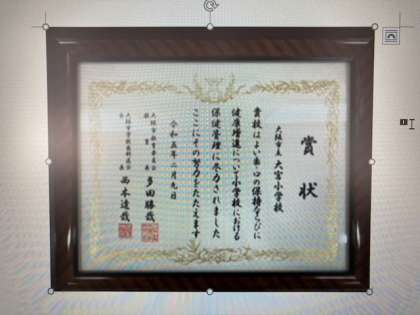 賞状
大阪市立 大宮小学校
貴校はよい歯・口の保持ならびに
健康増進について小学校における
保健管理に努力されました
ここにその努力をたたえます
令和五年二月九日
大阪市教育委員会
教育長 多田勝哉
大阪市学校歯科医会
会長 西本達哉